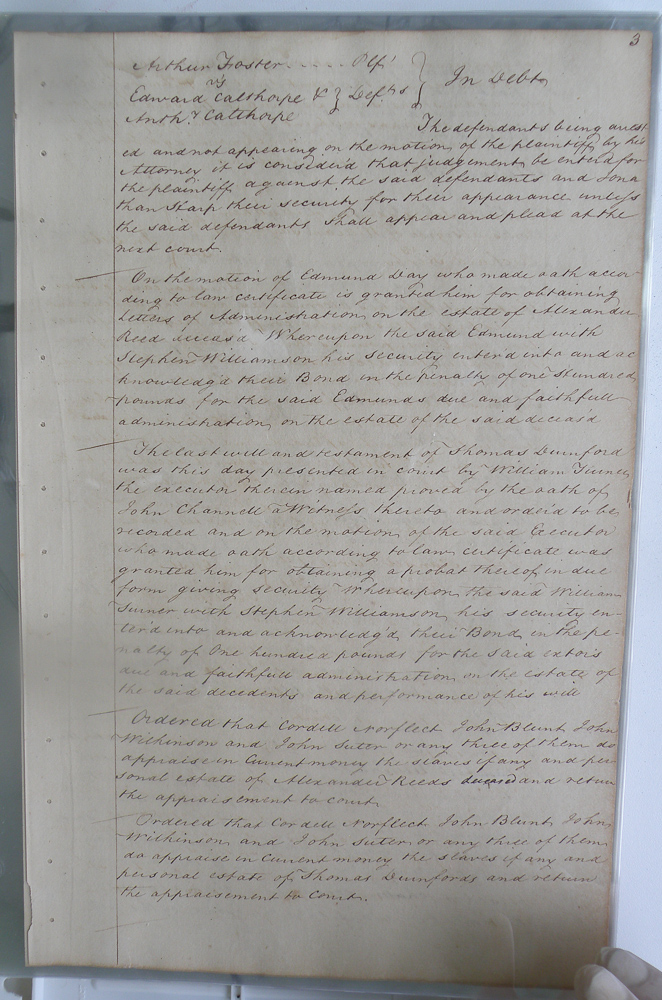 3
Arthur Foster . . . . . Plf
vs
Edward Calthorpe & } Defts } In Debt
Anthy Calthorpe
The defendants being arrest
ed and not appearing on the motion of the plaintiff by his
Attorney it is consider'd that judgement be enter'd for
the plaintiff against the said defendants and Jona
than Sharp their security for their appearance unless
the said defendants shall appear and plead at the
next court.
On the motion of Edmund Day who made oath accor
ding to law certificate is granted him for obtaining
Letters of Administration on the estate of Alexander
Reed deceas'd Whereupon the said Edmund with
Stephen Williamson his security enter'd into and ac
knowledg'd their Bond in the penalty of one Hundred
pounds for the said Edmunds due and faithfull
administration on the estate of the said deceas'd
The last will and testament of Thomas Dunford
was this day presented in court by William Turner
the executor therein named proved by the oath of
John Channell a Witness thereto and order'd to be
recorded and on the motion of the said Executor
who made oath according to law certificate was
granted him for obtaining a probat thereof in due
form giving security Whereupon the said William
Turner with Stephen Williamson his security en-
ter'd into and acknowledg'd their Bond in the pe-
nalty of One hundred pounds for the said extors
due and faithfull administration on the estate of
the said decedents and performance of his will
Ordered that Cordell Norfleet John Blunt John
Wilkinson and John Suter or any three of them do
appraise in Current money the slaves if any and per
sonal estate of Alexander Reeds deceased and return
the appraisement to court
Ordered that Cordell Norfleet John Blunt John
Wilkinson and John Suter or any three of them
do appraise in Current money the slaves if any and
personal estate of Thomas Dunfords and return
the appraisement to Court.